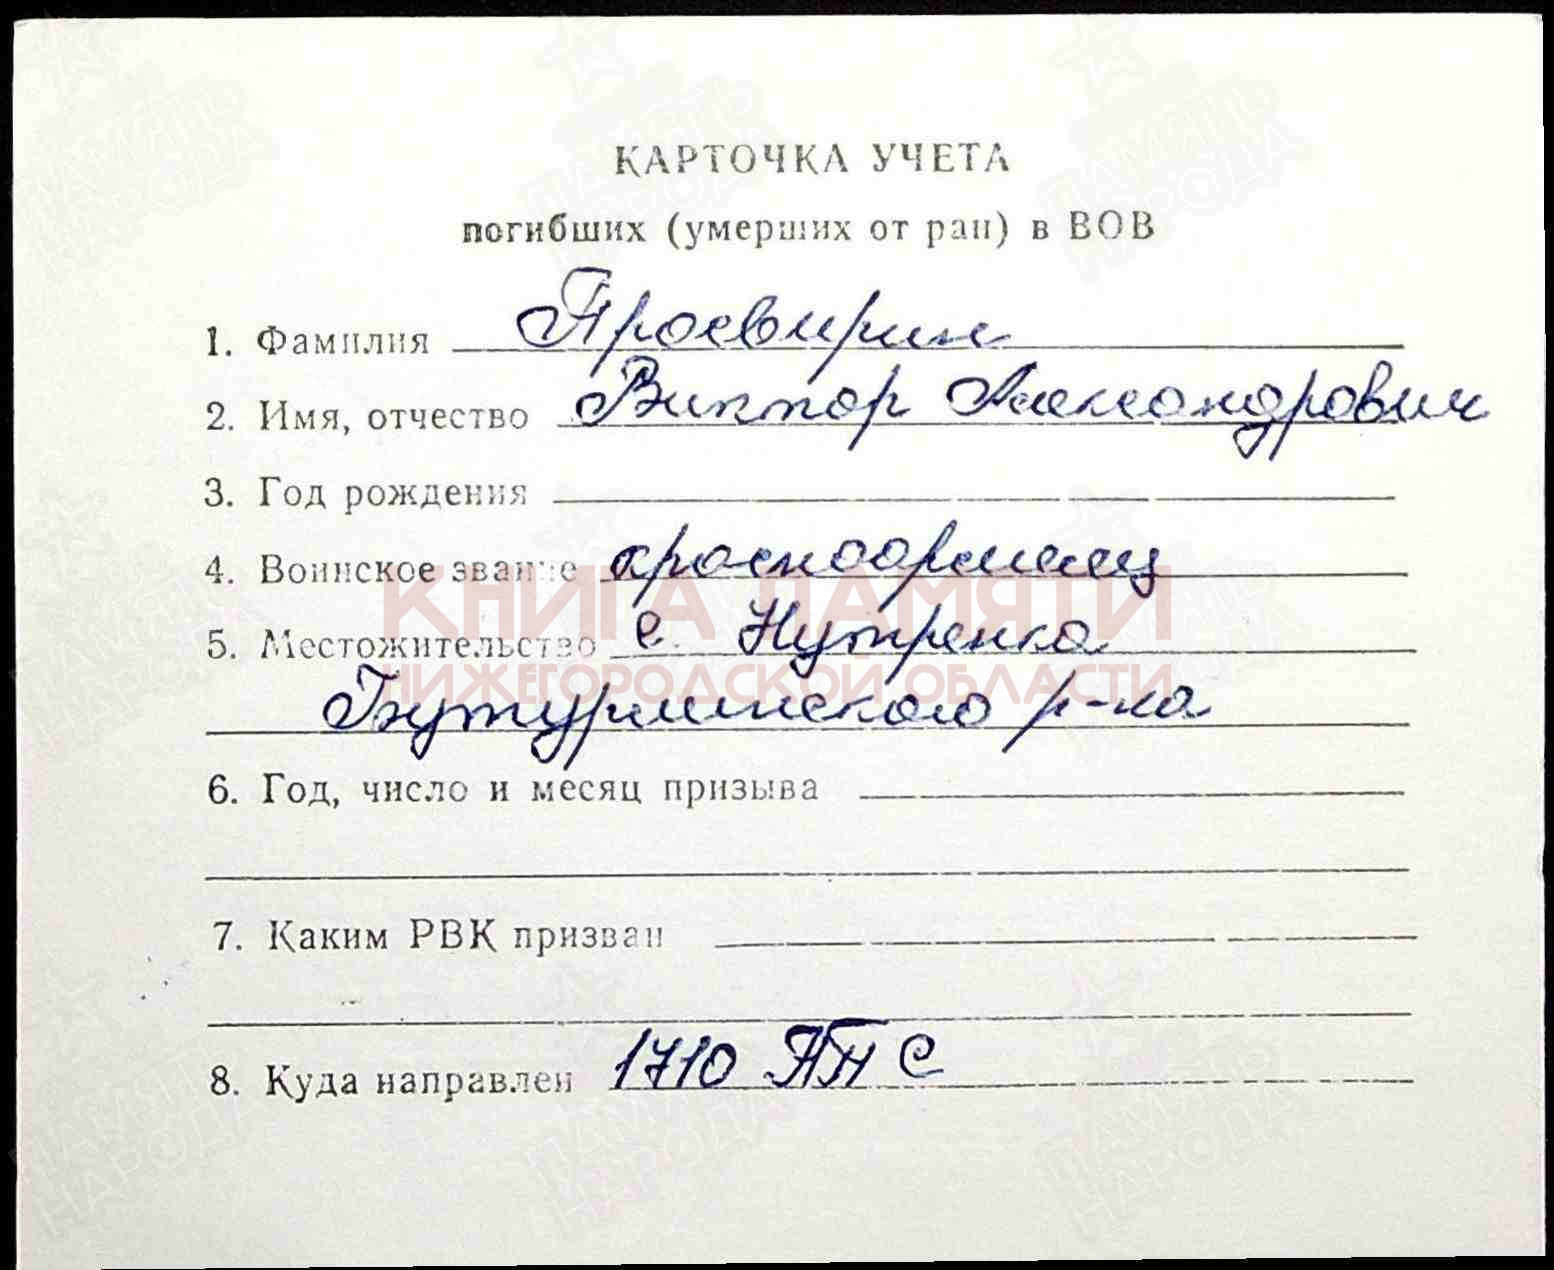 КАРТОЧКА УЧЕТА
погибших (умерших от ран) в ВОВ
1. Фамилия Просвирин
2. Имя, отчество Виктор Александрович
3. Год рождения
4. Воинское звание красноармеец
5. Местожительство с. Нутренка
Бутурлинского р-на
КНИГА ПАМЯТИ
НИЖЕГОРОДСКОЙ ОБЛАСТИ
6. Год, число и месяц призыва
7. Каким РВК призван
8. Куда направлен 1710 ППС
ПАМЯТЬ НАРОДА